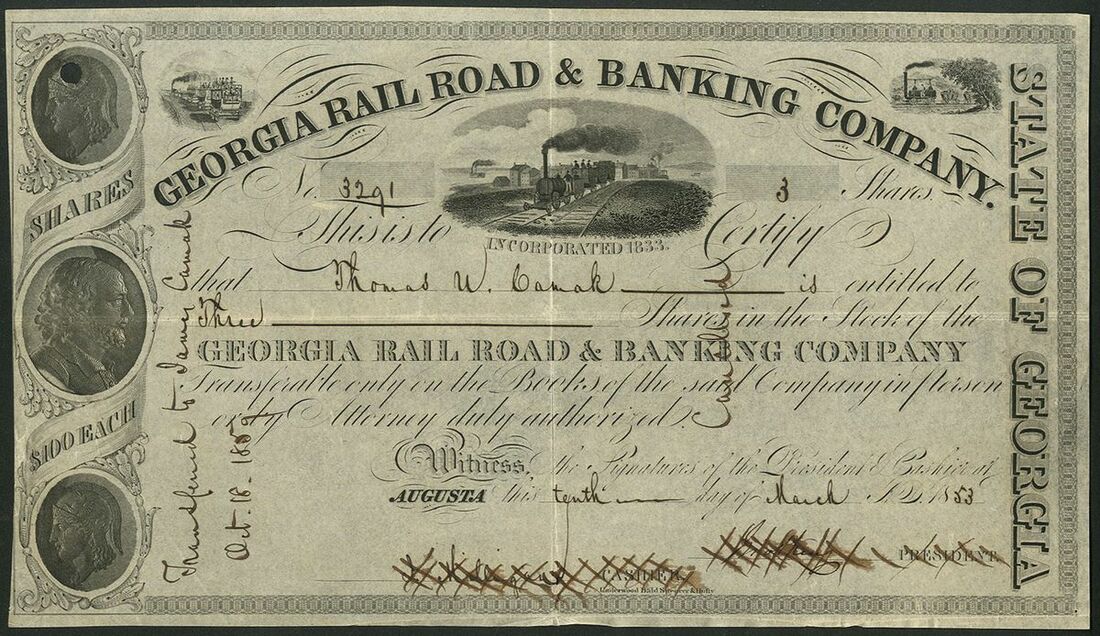 GEORGIA RAIL ROAD & BANKING COMPANY.
No. 3291
3 Shares.
INCORPORATED 1833.
This is to Certify
that Thomas W. Camak is entitled to
Three Shares in the Stock of the
GEORGIA RAIL ROAD & BANKING COMPANY
Transferable only on the Books of the said Company in person
or by Attorney duly authorized.
Witness, the Signatures of the President & Cashier at
AUGUSTA this tenth day of March A.D. 1853
CASHIER.
PRESIDENT.
Underwood Bald Spencer & Hufty
SHARES
$100 EACH
STATE OF GEORGIA
Transferred to James Camak
Oct. 18. 185
Cancelled